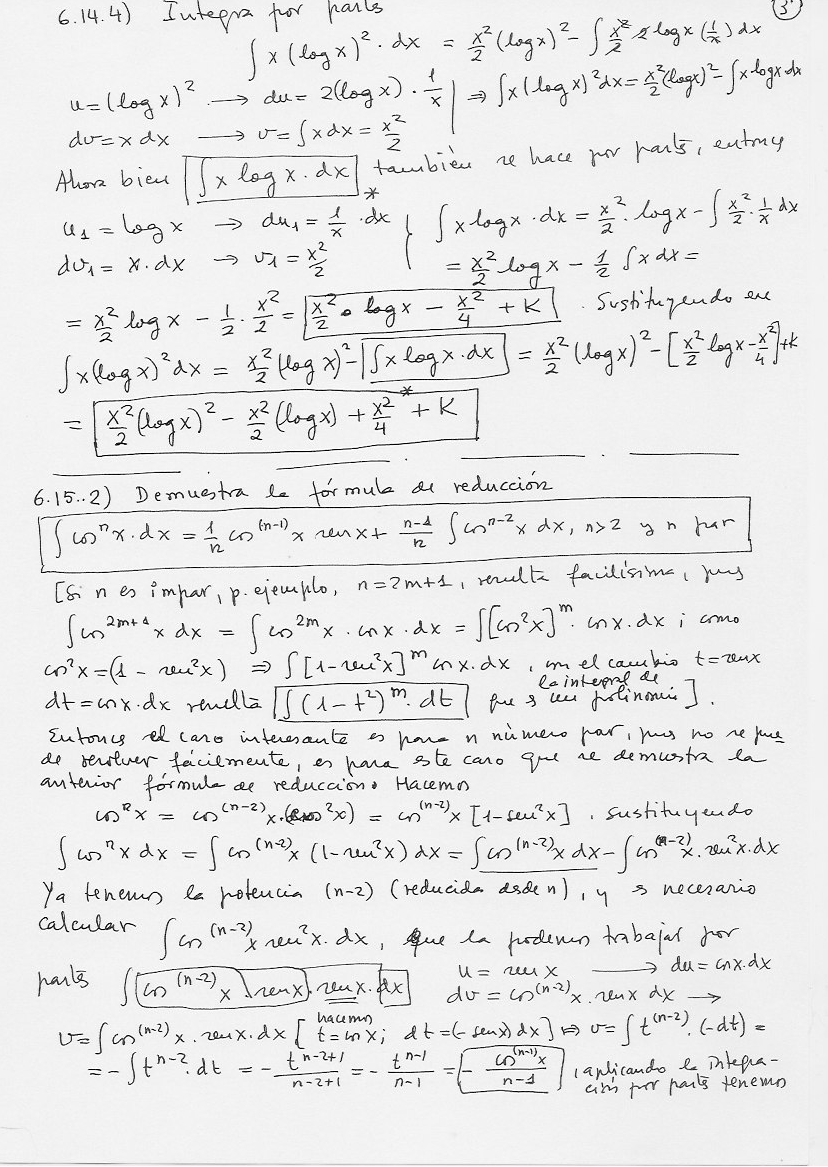 (3)
6.14.4) Integra por partes
∫ x (log x)² · dx = x²/2 (log x)² - ∫ x²/2 2 log x (1/x) dx
u = (log x)² → du = 2(log x) · 1/x ⇒ ∫ x (log x)² dx = x²/2 (log x)² - ∫ x log x dx
dv = x dx → v = ∫ x dx = x²/2
Ahora bien ∫ x log x · dx * también se hace por partes, entonces
u₁ = log x → du₁ = 1/x · dx } ∫ x log x · dx = x²/2 · log x - ∫ x²/2 · 1/x dx
dv₁ = x · dx → v₁ = x²/2 = x²/2 log x - 1/2 ∫ x dx =
= x²/2 log x - 1/2 · x²/2 = x²/2 · log x - x²/4 + K . Sustituyendo en
∫ x (log x)² dx = x²/2 (log x)² - ∫ x log x · dx * = x²/2 (log x)² - [x²/2 log x - x²/4] + K
= x²/2 (log x)² - x²/2 (log x) + x²/4 + K
6.15..2) Demuestra la fórmula de reducción
∫ cosⁿ x · dx = 1/n cos⁽ⁿ⁻¹⁾ x sen x + n-1/n ∫ cosⁿ⁻² x dx, n>2 y n par
[Si n es impar, p. ejemplo, n = 2m+1, resulta facilísima, pues
∫ cos²ᵐ⁺¹ x dx = ∫ cos²ᵐ x · cos x · dx = ∫ [cos² x]ᵐ · cos x · dx ; como
cos² x = (1 - sen² x) ⇒ ∫ [1 - sen² x]ᵐ cos x · dx , con el cambio t = sen x
dt = cos x · dx resulta ∫ (1 - t²)ᵐ · dt que es la integral de un polinomio ] .
Entonces el caso interesante es para n número par, pues no se pue-
de resolver fácilmente, es para este caso que se demuestra la
anterior fórmula de reducción. Hacemos
cosⁿ x = cos⁽ⁿ⁻²⁾ x · (cos² x) = cos⁽ⁿ⁻²⁾ x [1 - sen² x] . sustituyendo
∫ cosⁿ x dx = ∫ cos⁽ⁿ⁻²⁾ x (1 - sen² x) dx = ∫ cos⁽ⁿ⁻²⁾ x dx - ∫ cos⁽ⁿ⁻²⁾ x · sen² x · dx
Ya tenemos la potencia (n-2) (reducida desde n), y es necesario
calcular ∫ cos⁽ⁿ⁻²⁾ x sen² x · dx, que la podemos trabajar por
partes ∫ cos⁽ⁿ⁻²⁾ x · sen x · sen x · dx u = sen x → du = cos x · dx
dv = cos⁽ⁿ⁻²⁾ x · sen x dx →
v = ∫ cos⁽ⁿ⁻²⁾ x · sen x · dx [ hacemos t = cos x ; dt = (- sen x) dx ] ⇒ v = ∫ t⁽ⁿ⁻²⁾ · (-dt) =
= - ∫ tⁿ⁻² · dt = - tⁿ⁻²⁺¹/n-2+1 = - tⁿ⁻¹/n-1 = - cos⁽ⁿ⁻¹⁾ x/n-1 , aplicando la integra-
ción por partes tenemos